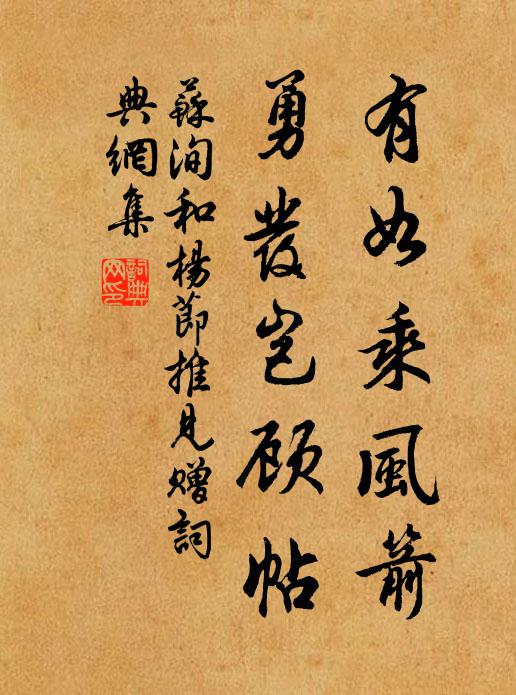 有如乘風箭
勇發豈顧帖
蘇洵和楊節推見贈詞
典網集
詞典
网印